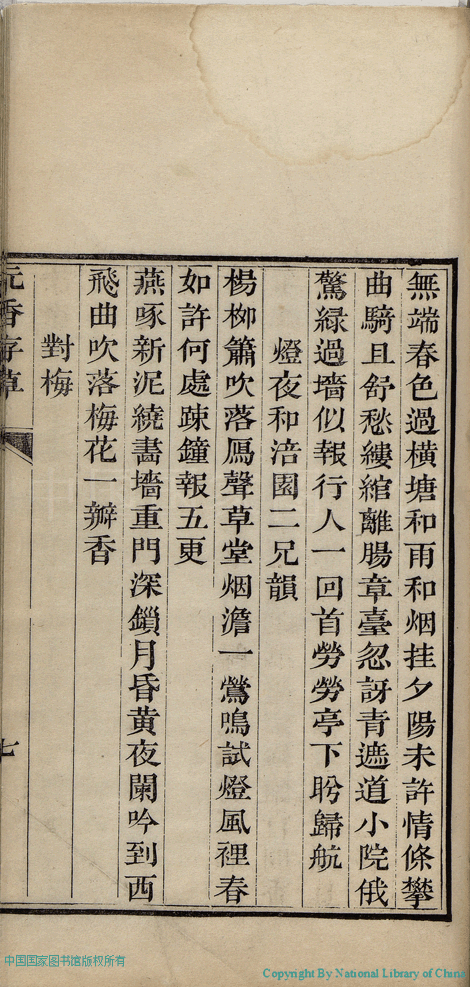 無端春色過橫塘和雨和烟挂夕陽未許情條攀
曲騎且舒愁縷綰離腸章臺忽訝青遮道小院俄
驚緑過墻似報行人一回首勞勞亭下盻歸航
燈夜和涪園二兄韻
楊栁簫吹落鴈聲草堂烟澹一鶯鳴試燈風裡春
如許何處踈鐘報五更
燕啄新泥繞畵墻重門深鎖月昏黄夜闌吟到西
飛曲吹落梅花一瓣香
對梅
香存草
七
中国国家图书馆版权所有
Copyright By National Library of China